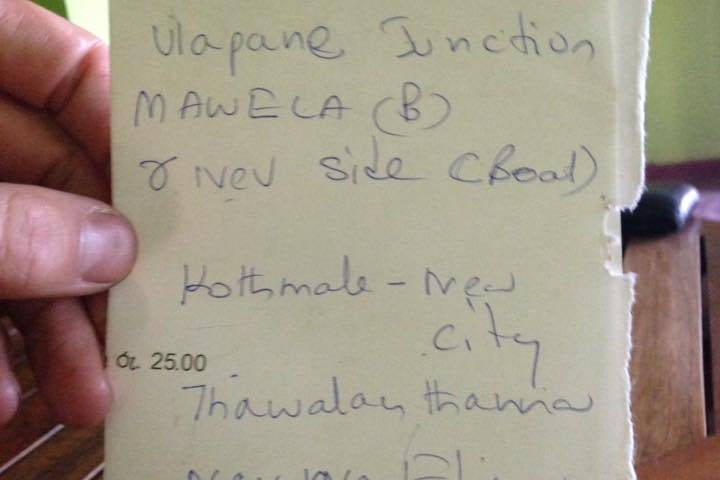 Ulapane Junction
MAWELA (B)
River side (Boat)
Kothmale - New
City
රු. 25.00
Thawalanthanna